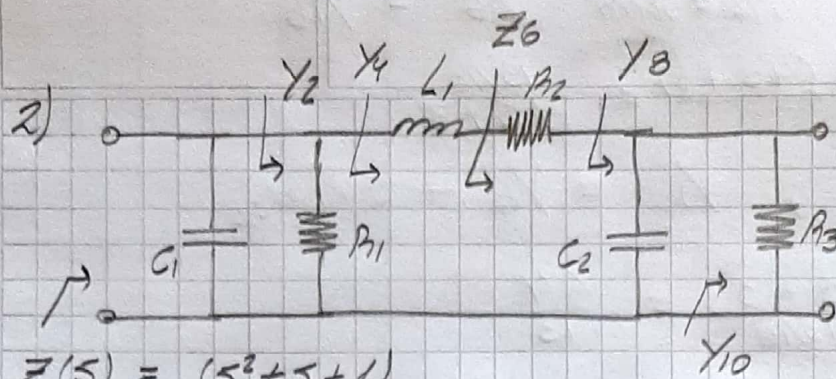 Z6
Y2 Y4 L1 R2 Y8
2)
C1 R1 C2 R3
Y10
Z(S) = (S²+S+1)